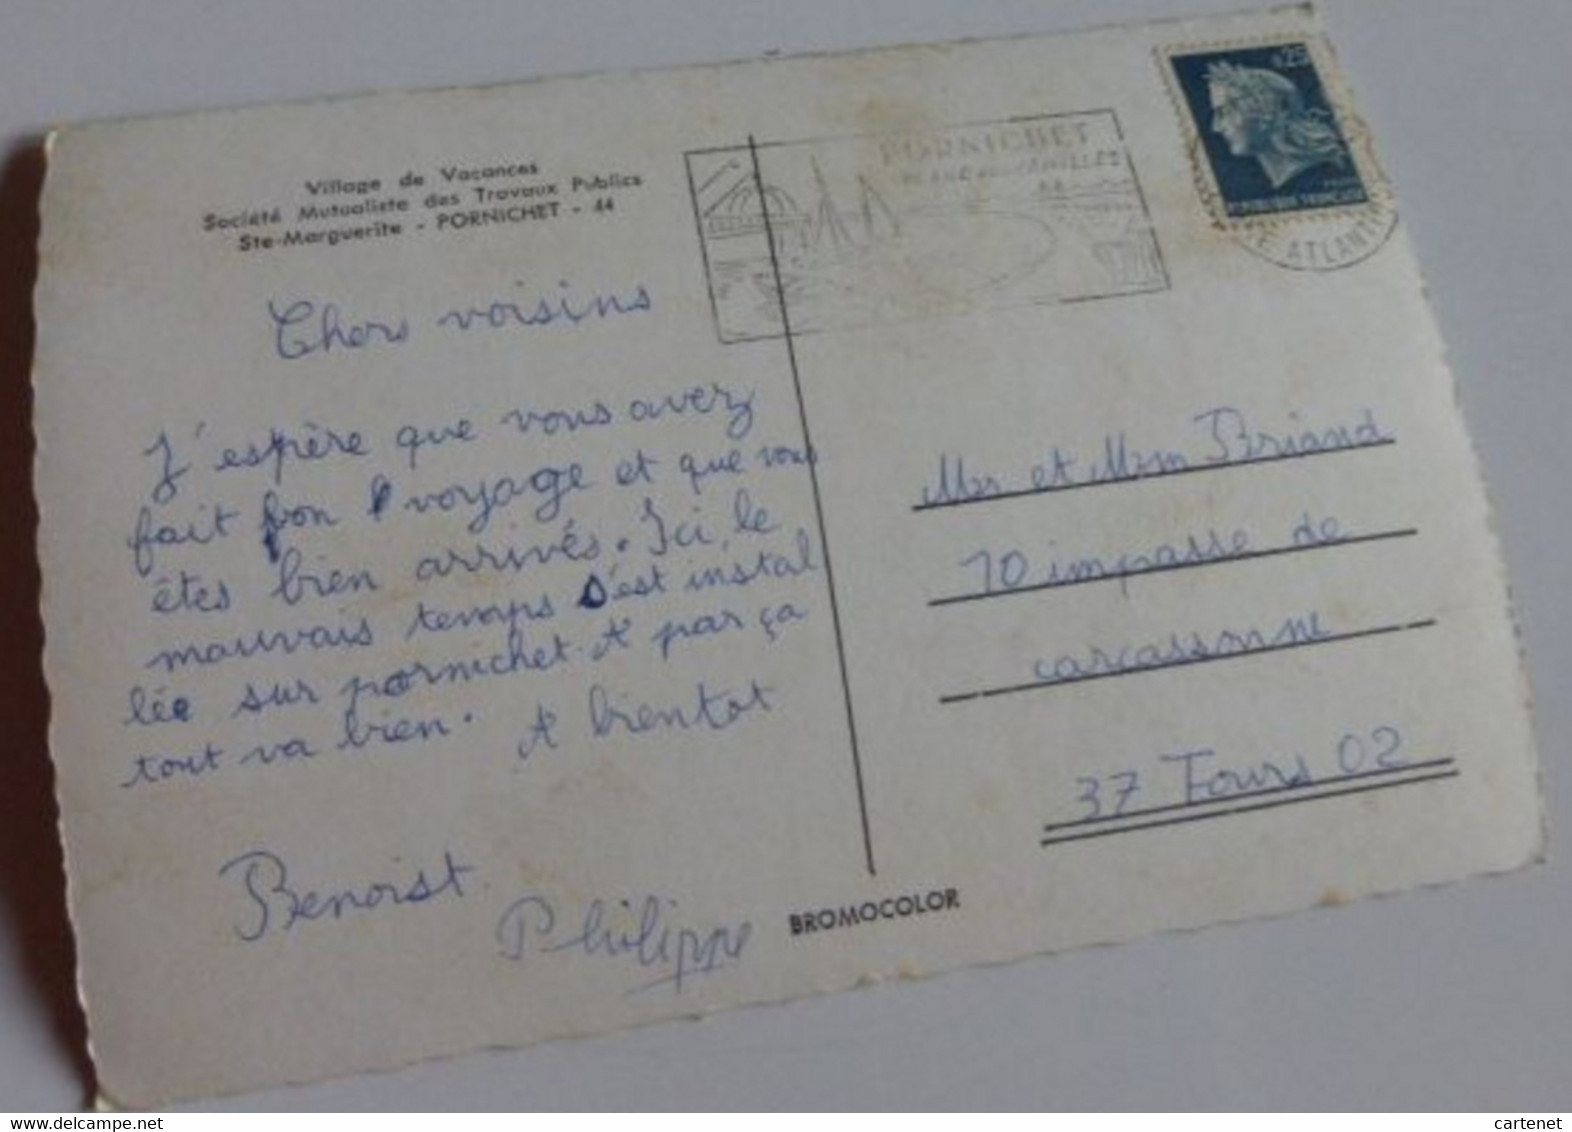 Village de Vacances
Société Mutualiste des Travaux Publics
Ste-Marguerite - PORNICHET - 44
PORNICHET
0,25
ATLANTI
Chers voisins
J'espère que vous avez
fait bon voyage et que vous
êtes bien arrivés. Ici, le
mauvais temps s'est instal
lée sur pornichet. A par ça
tout va bien. A bientot
Benoist
Philippe
BROMOCOLOR
Mr et Mm Briand
10 impasse de
carcassonne
37 Tours 02
www.delcampe.net
cartenet